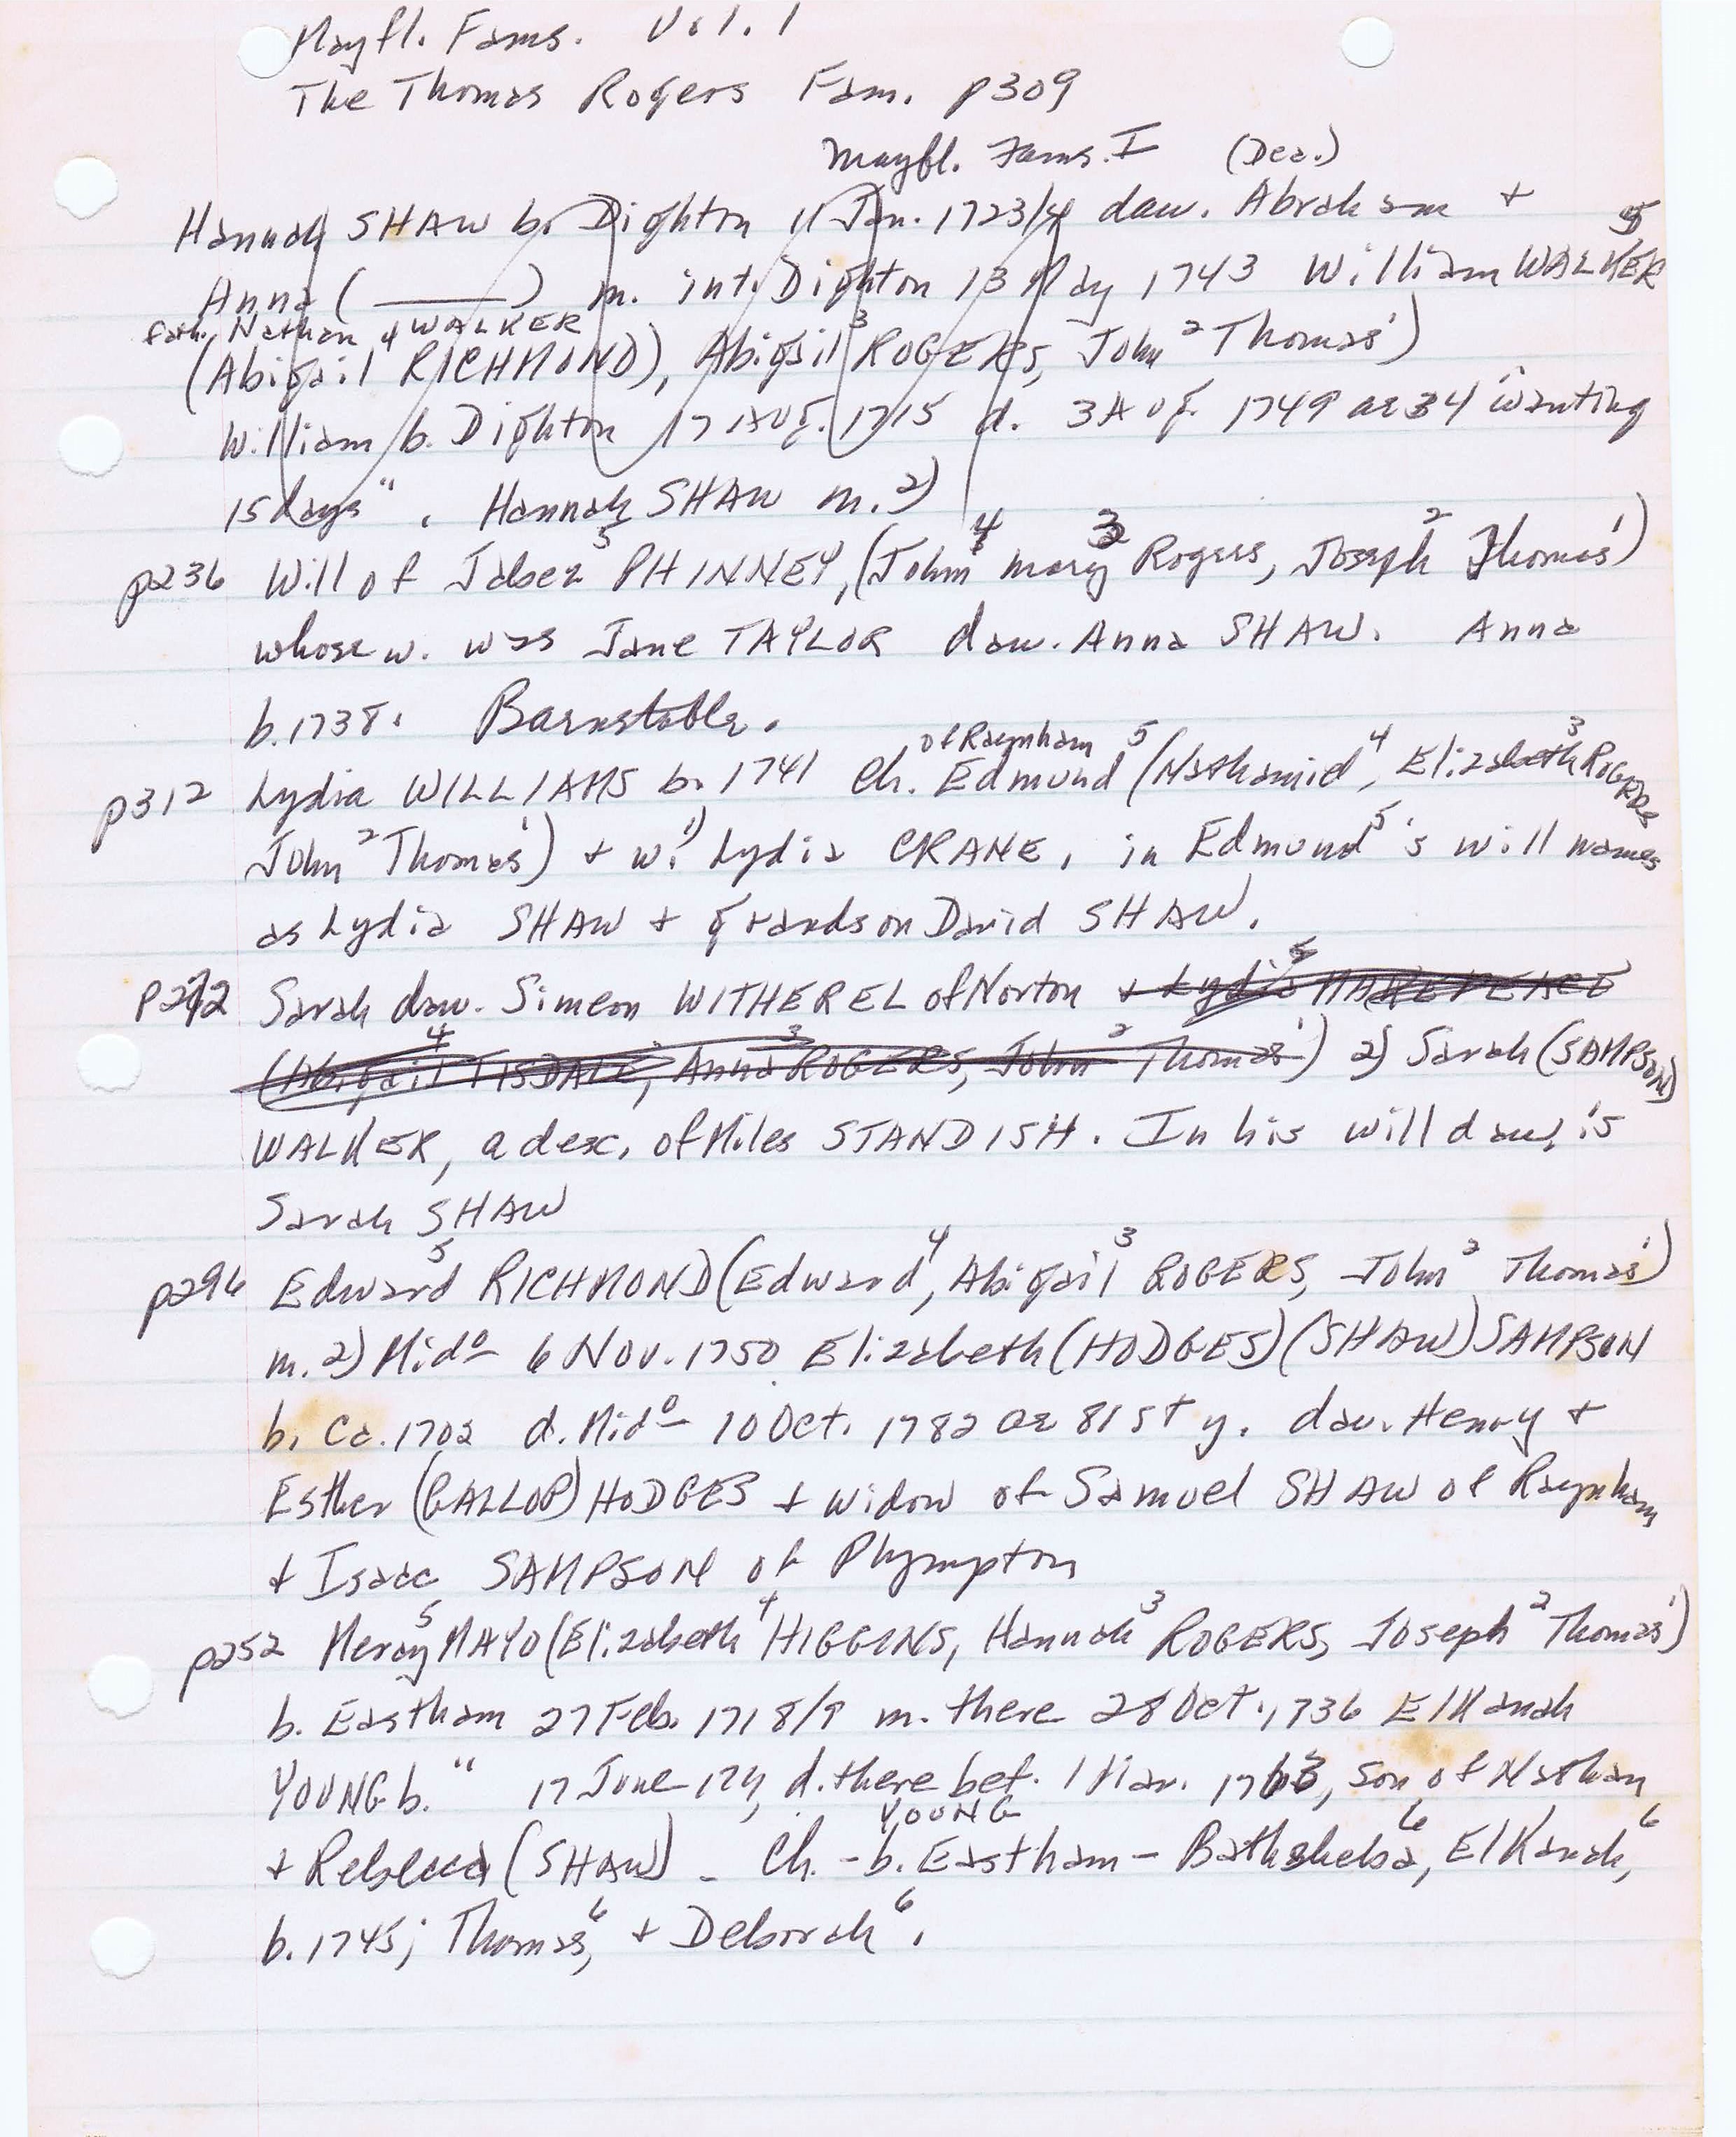 Mayfl. Fams. Vol. 1
The Thomas Rogers Fam. p309
Mayfl. Fams. I (Dea.)
Hannah SHAW b. Dighton 11 Jan. 1723/4 dau. Abraham +
Anna ( ——— ) m. int. Dighton 13 May 1743 William⁵ WALKER
fath. Nathan⁴ WALKER
(Abigail RICHMOND), Abigail³ ROGERS, John² Thomas¹)
William b. Dighton 17 Aug. 1715 d. 3 Aug. 1749 ae 34 "wanting
15 days". Hannah SHAW m. 2)
p236 Will of Jabez⁵ PHINNEY, (John⁴ Mary³ Rogers, Joseph² Thomas¹)
whose w. was Jane TAYLOR dau. Anna SHAW. Anna
b. 1738. Barnstable.
of Raynham
p312 Lydia WILLIAMS b. 1741 Ch. Edmund⁵ (Nathaniel⁴, Elizabeth³ ROGERS
John² Thomas¹) + w. 1) Lydia CRANE, in Edmund⁵'s will names
as Lydia SHAW + grandson David SHAW.
p272 Sarah dau. Simeon WITHEREL of Norton + Lydia⁵ MAKEPEACE
(Abigail⁴ TISDALE, Anna³ ROGERS, John² Thomas¹) 2) Sarah (SAMPSON)
WALKER, a desc. of Miles STANDISH. In his will dau. is
Sarah SHAW
p296 Edward⁵ RICHMOND (Edward⁴, Abigail³ ROGERS, John² Thomas¹)
m. 2) Midº 6 Nov. 1750 Elizabeth (HODGES) (SHAW) SAMPSON
b. Ca. 1702 d. Midº 10 Oct. 1782 ae 81st y. dau. Henry +
Esther (GALLOP) HODGES + widow of Samuel SHAW of Raynham
+ Isaac SAMPSON of Plympton
p252 Mercy⁵ MAYO (Elizabeth⁴ HIGGINS, Hannah³ ROGERS, Joseph² Thomas¹)
b. Eastham 27 Feb. 1718/9 m. there 28 Oct. 1736 ElKanah
YOUNG b. " 17 June d. there bef. 1 Mar. 1763, son of Nathan
YOUNG
+ Rebecca (SHAW) - Ch. - b. Eastham - Bathsheba⁶, ElKanah,⁶
b. 1745; Thomas,⁶ + Deborah⁶.